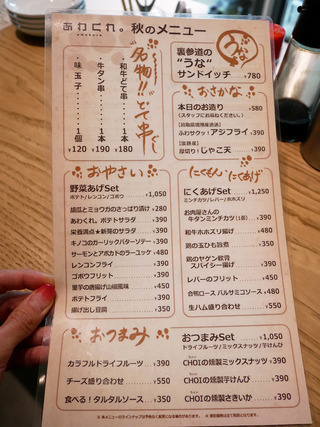 あわくれ。秋のメニュー
"名物!!"どて串
・和牛どて串 1本 ¥180
・牛タン串 1本 ¥190
・味玉子 1個 ¥120
うな
裏参道の
"うな"
サンドイッチ ¥780
おさかな
本日のお造り ¥580
(スタッフにお尋ねください。)
ふわサクッ!アジフライ ¥390
厚切り!じゃこ天 ¥390
おやさい
野菜あげSet ¥1,050
ポテト/レンコン/ゴボウ
胡瓜とミョウガのさっぱり漬け ¥280
あわくれ。ポテトサラダ ¥390
栄養満点★新芽のサラダ ¥390
キノコのガーリックバターソテー ¥390
サーモンとアボカドのラー油ユッケ ¥480
レンコンフライ ¥390
ゴボウフリット ¥390
里芋の唐揚げ山椒風味 ¥450
ポテトフライ ¥390
揚げ出し豆腐 ¥350
にくもん にくあげ
にくあげSet ¥1,250
ミンチカツ/レバー/ホホスジ
お肉屋さんの
牛タンミンチカツ(1個) ¥390
和牛ホホスジ揚げ ¥480
鶏の玉ひも旨煮 ¥350
鶏のヤゲン軟骨
スパイシー揚げ ¥390
レバーのフリット ¥450
合鴨ロース バルサミコソース ¥480
生ハム盛り合わせ ¥550
おつまみ
カラフルドライフルーツ ¥390
チーズ盛り合わせ ¥550
食べる!タルタルソース ¥350
おつまみSet ¥1,050
ドライフルーツ/ミックスナッツ/芋けんぴ
CHOIの燻製ミックスナッツ ¥390
CHOIの燻製芋けんぴ ¥390
CHOIの燻製さきいか ¥390